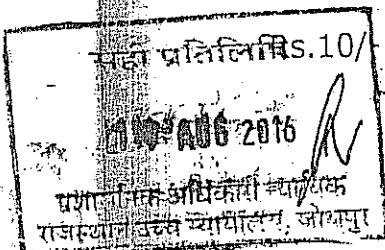 सही प्रतिलिपि Rs.10/
AUG 2016
प्रशासनिक अधिकारी न्यायिक
राजस्थान उच्च न्यायालय, जोधपुर